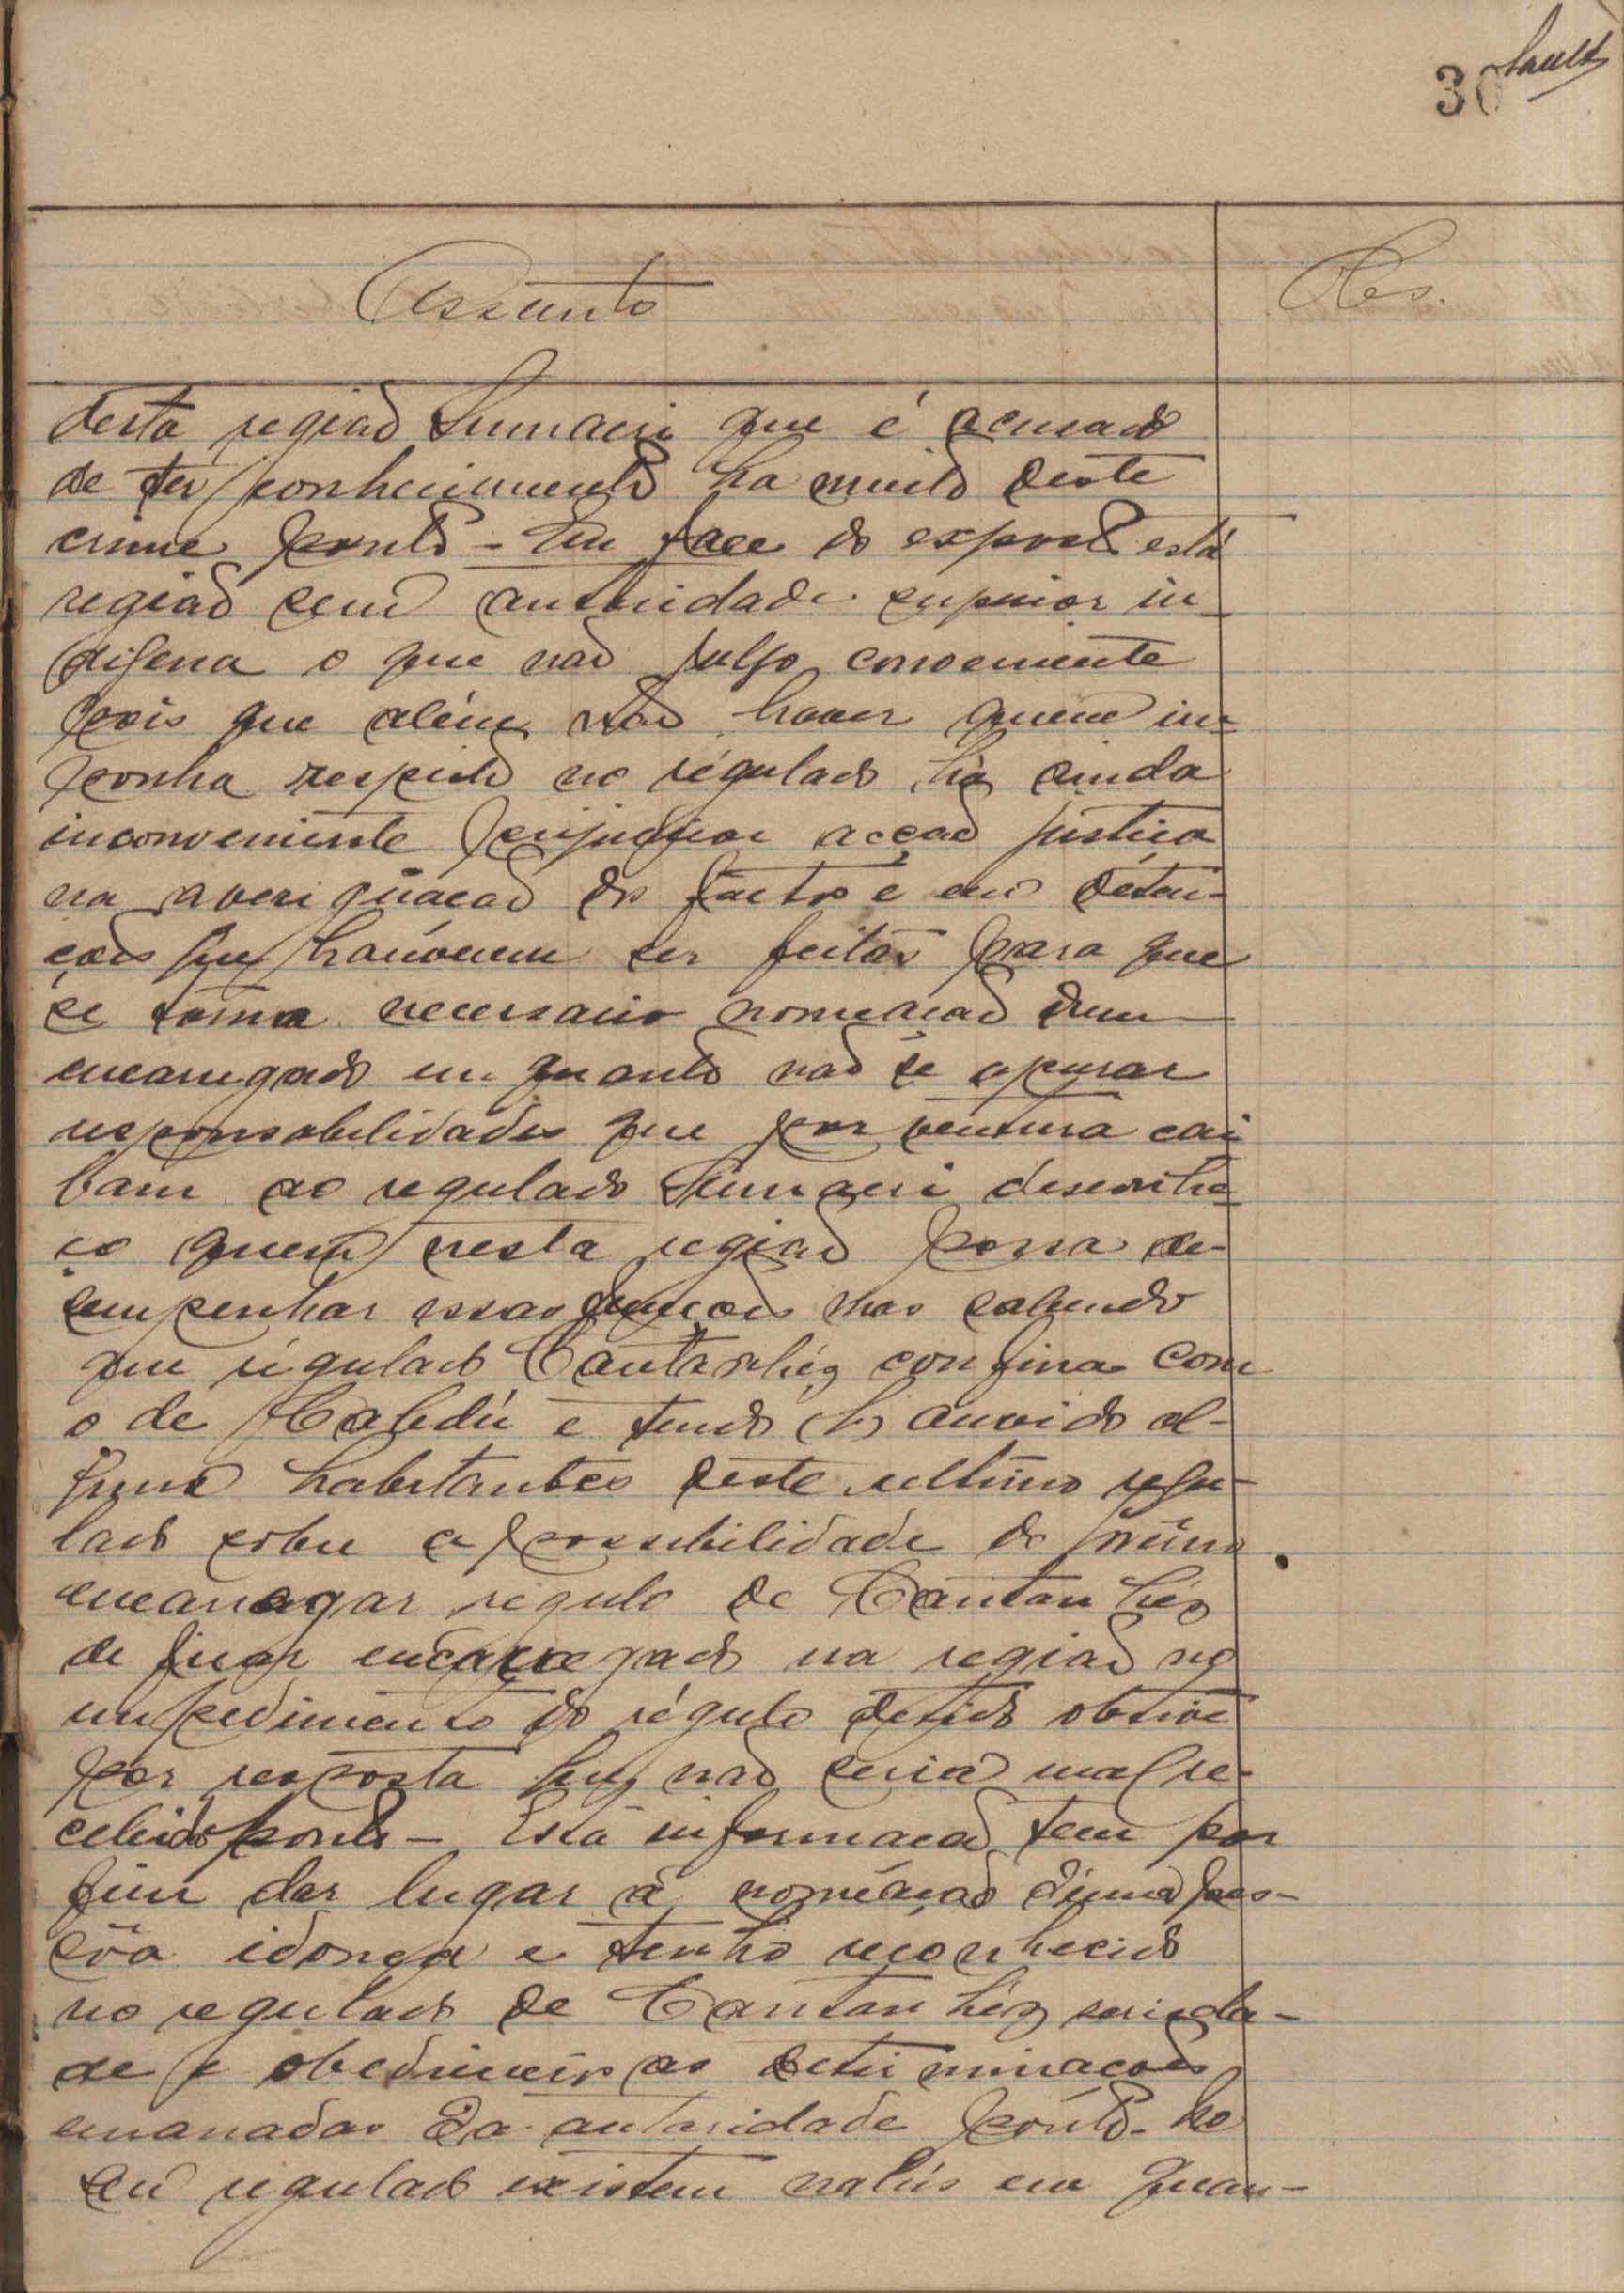 30
Assunto
Obs.
desta região Sumaeri que é acusado
de ter conhecimento ha muito deste
crime ponto - Em face do exposto está
região sem autoridade superior in-
digena o que não julgo conveniente
pois que além não haver quem im-
ponha respeito no régulado há ainda
inconveniente prejudicar acção justica
na averiguacão dos factos e em deten-
ções que houverem ser feitas para que
se torna necessario nomeacão dum
encarregado em quanto não se apurar
responsabilidades que por ventura cai
bam ao regulado Sumaeri desconhe-
ço quem nesta região possa de-
sempenhar essas funções mas sabendo
que régulado Cantanhéz confina com
o de Cabedú e tendo ouvido al-
guns habitantes deste ultimo regu-
lado sobre a possibilidade de
encarregar regulo de Cantanhéz
de ficar encarregado na região no
impedimento do régulo detido obtive
por resposta que não seria mal re-
cebido ponto - Esta informacão tem por
fim dar lugar á nomeácão d'uma pes-
sôa idonea e tenho reconhecido
no regulado de Cantanhéz serieda-
de e obediencia as determinacões
emanadas da autoridade ponto - No
seu regulado existem nalús em quan-